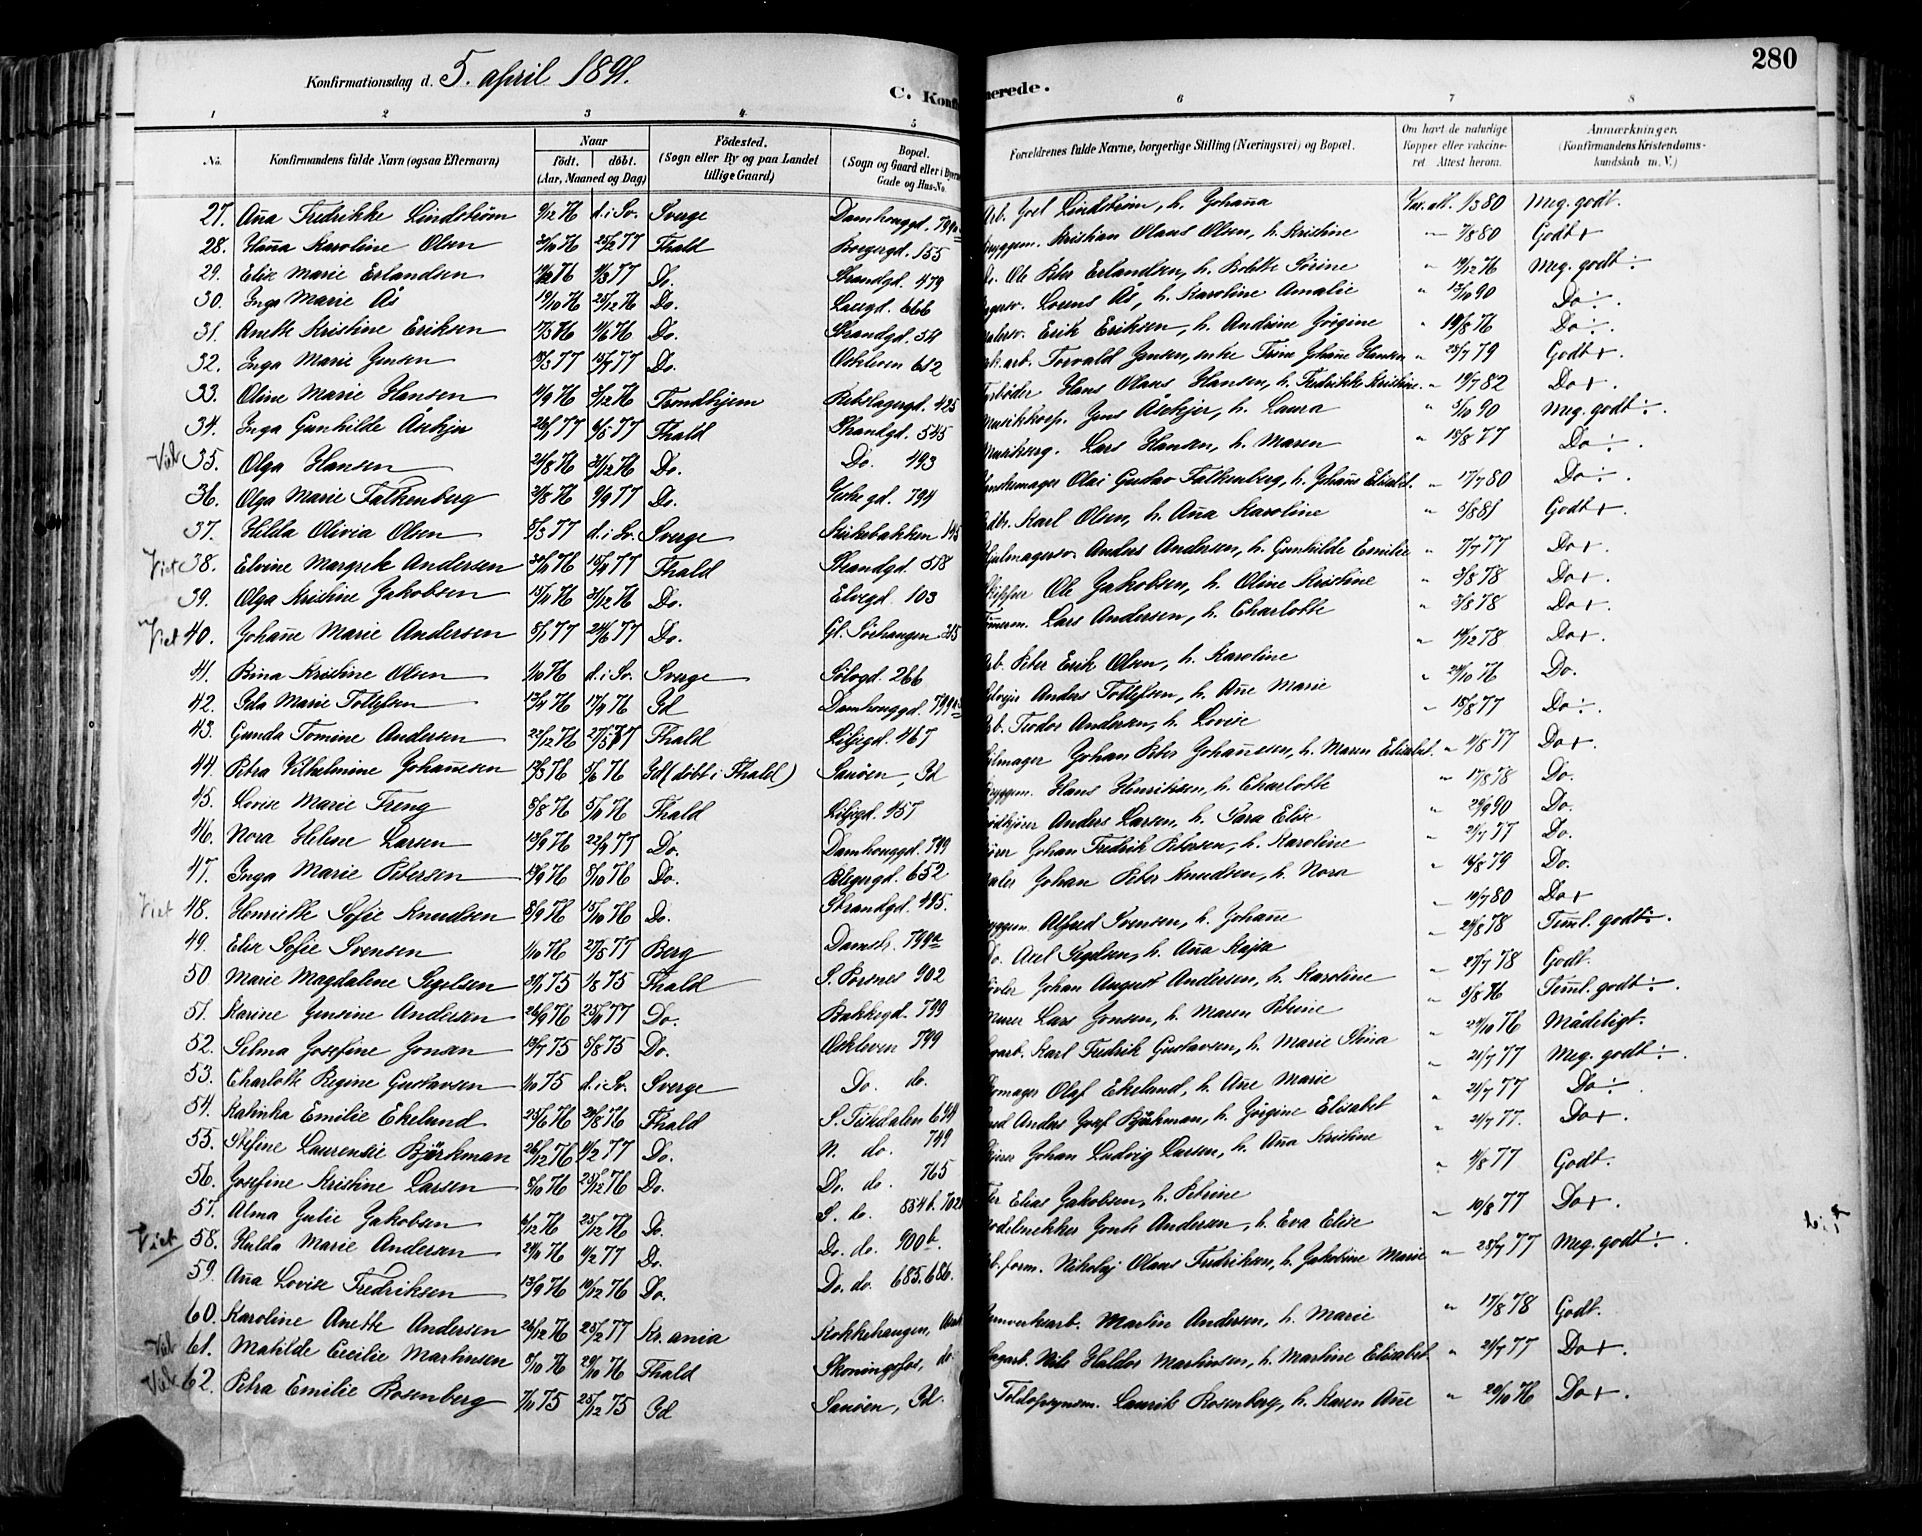 280
Konfirmationsdag d. 5. april 1891.
C. Konfi
merede.
1 2 3 4 5 6 7 8
No. Konfirmandens fulde Navn (ogsaa Efternavn) Naar födt. döbt. (Aar, Maaned og Dag) Födested. (Sogn eller By og paa Landet tillige Gaard) Bopæl. (Sogn og Gaard eller i Byerne Gade og Hus-No. Forældrenes fulde Navne, borgerlige Stilling (Næringsvei) og Bopæl. Om havt de naturlige Kopper eller vakcineret Attest herom. Anmærkninger. (Konfirmandens Kristendomskundskab m. V.)
27. Aña Fredrikke Lindström 9/12 76 d. i Sv. Sverge Damhauggd. 799a Arb. Joel Lindström, h. Johaña Vac. att. 1/3 80 Meg. godt.
28. Haña Karoline Olsen 25/2 77 Fhald Borgergd. 155 Kristian Olaus Olsen, h. Kristine " 7/8 80 Godt+
29. Elise Marie Erlandsen 4/3 77 Do. Strandgd. 479 Do. Ole Peter Erlandsen, h. Bolette Sörine " 19/12 76 Meg. godt÷
30. Inga Marie Ås 19/10 76 26/12 76 Do. 666 Lorens Ås, h. Karoline Amalie " 13/10 90 Do÷.
31. Anette Kristine Eriksen 17/3 76 4/6 76 Do. Strandgd. 54 Erik Eriksen, h. Andrine Jörgine " 19/8 76 Do÷.
32. Inga Marie Jensen 15/7 77 Do. Oskleven 652 Torvald Jensen, enke Trine Johañe Hansen " 25/7 79 Godt+.
33. Oline Marie Hansen 4/9 76 3/12 76 Trondhjem Rebslagergd. 425 Hans Olaus Hansen, h. Fredrikke Kristine. " 19/7 82 Do+.
34. Inga Gunhilde Åsekjer 26/1 77 6/5 77 Fhald Strandgd. 545 Musikkorp. Jens Åsekjer, h. Laura " 5/10 90 Meg. godt÷.
35. Olga Hansen 21/8 76 31/12 76 Do. Do. 493 Lars Hansen, h. Maren " 15/8 77 Do÷.
36. Olga Marie Falkenberg 3/8 76 9/9 77 Do. 794 Olai Gustav Falkenberg, h. Johañe Elisabet. " 17/7 80 Do÷.
37. Hilda Olivia Olsen 8/3 77 d. i Sv. Sverge Kirkebakken 145 Karl Olsen, h. Aña Karoline " 5/8 81 Godt+.
Viet 38. Elvine Margrete Andersen 30/11 76 Fhald Strandgd. 518 Hjulmagersv. Anders Andersen, h. Gunhilde Emilie " 7/7 77 Do+.
39. Olga Kristine Jakobsen 15/11 76 31/12 76 Do. Elvegd. 103 Skipper Ole Jakobsen, h. Oline Kristine " 3/8 78 Do+.
Viet 40. Johañe Marie Andersen 8/1 77 24/6 77 Do. Gl. Sörhaugen 315 Tömerm. Lars Andersen, h. Charlotte " 3/8 78 Do+.
41. Rina Kristine Olsen 1/10 76 d. i Sv. Sverge Sölvgd. 266 Arb. Peter Erik Olsen, h. Karoline " 14/12 78 Do+.
42. Ida Marie Tollefsen 17/9 76 Id Damhauggd. 799a Anders Tollefsen, h. Añe Marie " 24/10 76 Do.
43. Gunda Tomine Andersen 22/12 76 27/5 77 Fhald Liljegd. 467 Arb. Teodor Andersen, h. Lovise " 15/8 77 Do÷.
44. Petra Vilhelmine Johañesen 13/3 76 5/6 76 Id (döbt i Fhald) Sauöen, Id Johan Peter Johañesen, h. Maren Elisabet. " 11/8 77 Do+.
45. Lovise Marie Treng 8/8 76 5/10 76 Fhald Liljegd. 457 Hans Henriksen, h. Charlotte " 17/8 78 Do.
46. Nora Helene Larsen 13/9 76 22/9 77 Do. Damhauggd. 799 Anders Larsen, h. Sara Elise " 29/9 90 Do.
47. Inga Marie Petersen 13/9 76 5/10 76 Do. 652 Johan Fredrik Petersen, h. Karoline " 21/7 77 Do.
Viet 48. Henriette Sofie Knudsen 8/9 76 15/10 76 Do. Strandgd. 495. Johan Peter Knudsen, h. Nora " 14/8 79 Do.
49. Elise Sofie Svensen 1/10 76 27/8 77 Berg Damst. 799a Alfred Svensen, h. Johañe " 10/7 80 Do+
50 Marie Magdalene Segelsen 1/8 75 Fhald S. Porsnes 902 Do. Axel Segelsen, h. Aña Kajsa " 24/8 78 Teml. godt÷.
51. Karine Jensine Andersen 26/9 76 Do. Bakkegd. 799 Johan August Andersen, h. Karoline " 27/7 78 Godt.
52. Selma Josefine Jonsen 13/7 75 5/8 75 Do. Oskleven 799 Murer Lars Jonsen, h. Maren Petrine " 5/8 76 Teml. godt÷.
53. Charlotte Regine Gustavsen 1/10 75 d. i Sv. Sverge Do. do. Karl Fredrik Gustavsen, h. Marie Stina " 24/10 76 Mådeligt.
54. Katinka Emilie Ekelund 25/6 76 20/8 76 Fhald S. Tistedalen 694 Olaf Ekelund, h. Añe Marie " 21/7 77 Meg. godt÷.
55. Stefine Laurensie Björkman 26/12 76 4/2 77 Do. N. do. 749 Anders Josef Björkman, h. Jörgine Elisabet " 21/7 77 Do÷
56. Josefine Kristine Larsen 8/10 76 25/12 76 Do. Do. do. 765 Johan Ludvig Larsen, h. Aña Kristine " 21/7 77. Do+.
57. Alma Julie Jakobsen 6/12 76 25/12 76 Do. S. do. 554b. 702 Elias Jakobsen, h. Petrine " 4/8 77 Godt.
Viet 58. Hulda Marie Andersen 24/11 76 4/2 77 Do. Do. do. 900b. Modelsnekker Andersen, h. Eva Elise " 10/8 77 Do+.
59. Aña Lovise Fredriksen 13/9 76 10/12 76 Do. Do. do. 685. 686. Nikolaj Olaus Fredriksen, h. Jakobine Marie " 28/7 77 Meg. godt÷.
60. Karoline Anette Andersen 26/12 76 25/2 77 Kr.ania Kokkehaugen, Martin Andersen, h. Marie " 17/8 78 Godt.
61. Matilde Cecilie Martinsen 8/10 76 29/10 76 Fhald Skoningsfos, do. Sagarb. Nils Haldor Martinsen, h. Martine Elisabet " 21/7 77 Do+.
62. Petra Emilie Rosenberg 7/10 75 25/12 75 Id Sauöen, Id. Toldopsynsm. Laurits Rosenberg, h. Karen Añe " 20/10 76 Do+.